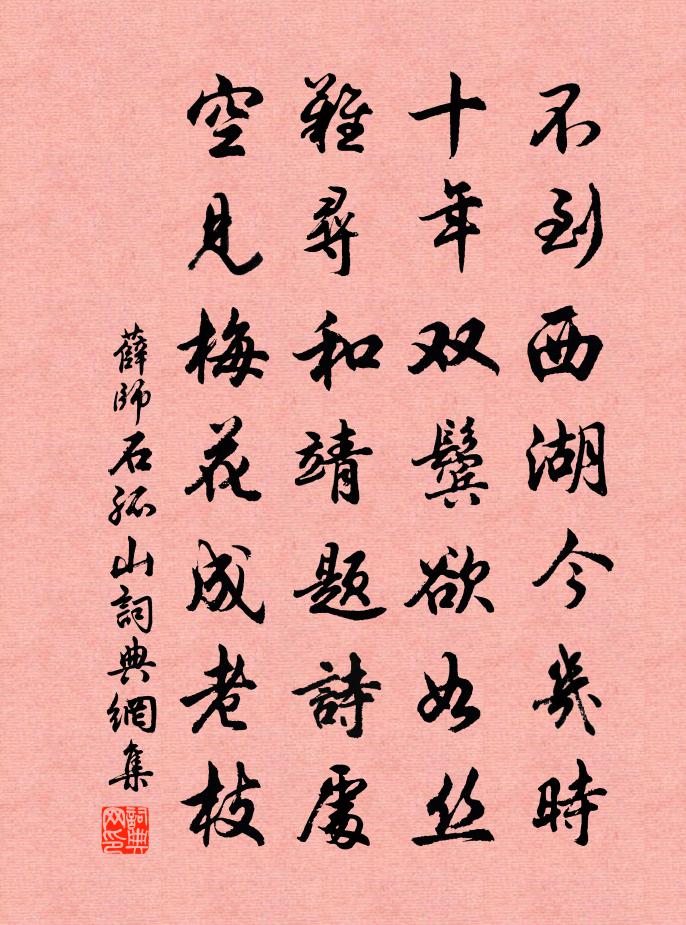 不到西湖今幾時
十年双鬢欲如丝
難尋和靖题詩處
空見梅花成老枝
薛師石孤山詞典網集
詞典网印